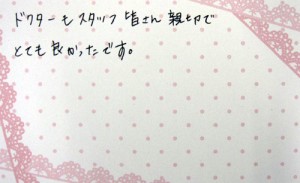 ドクターもスタッフ皆さん親切で
とても良かったです。